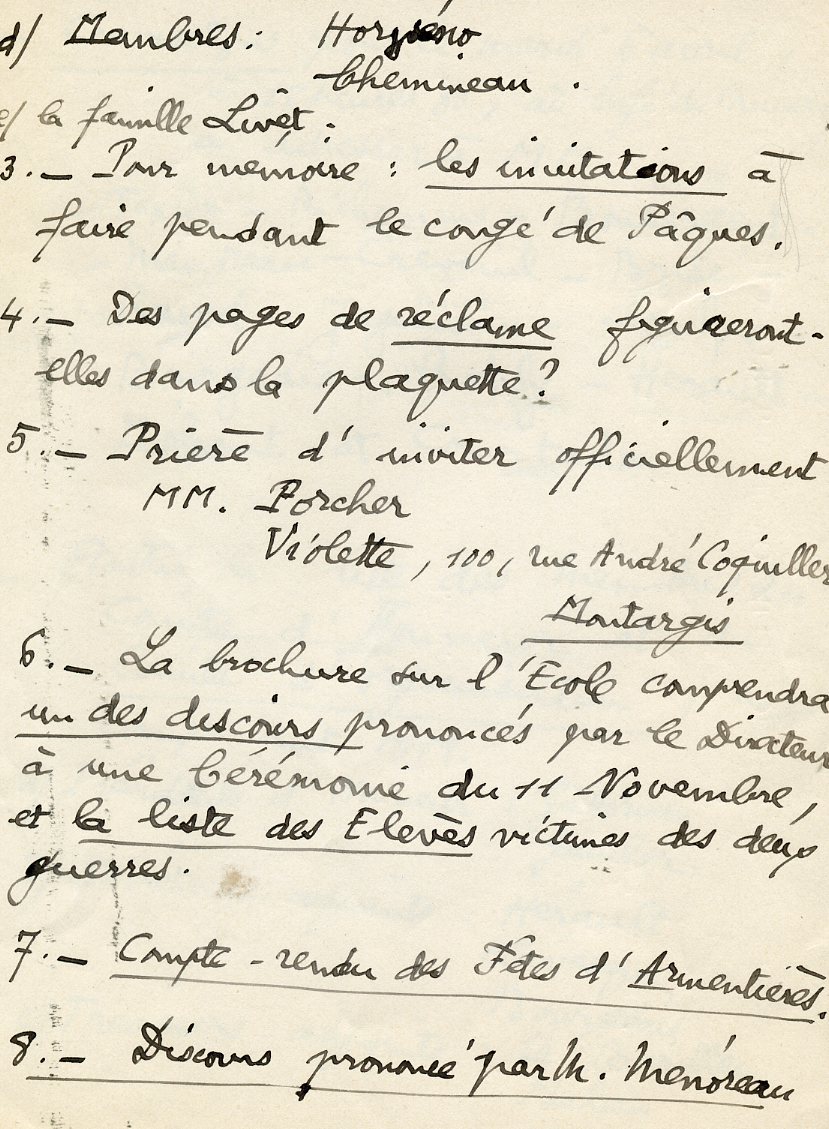 d/ Membres :
Chemineau .
e/ la famille Livet .
3. — Pour mémoire : les invitations à
faire pendant le congé de Pâques.
4. — Des pages de réclame figureront-
elles dans la plaquette ?
5. — Prière d'inviter officiellement
MM. Porcher
Violette , 100, rue André Coquillet
Montargis
6. — La brochure sur l'Ecole comprendra
un des discours prononcés par le Directeur
à une Cérémonie du 11 Novembre,
et la liste des Elèves victimes des deux
guerres.
7. — Compte-rendu des Fêtes d'Armentières.
8. — Discours prononcé par M. Menóreau